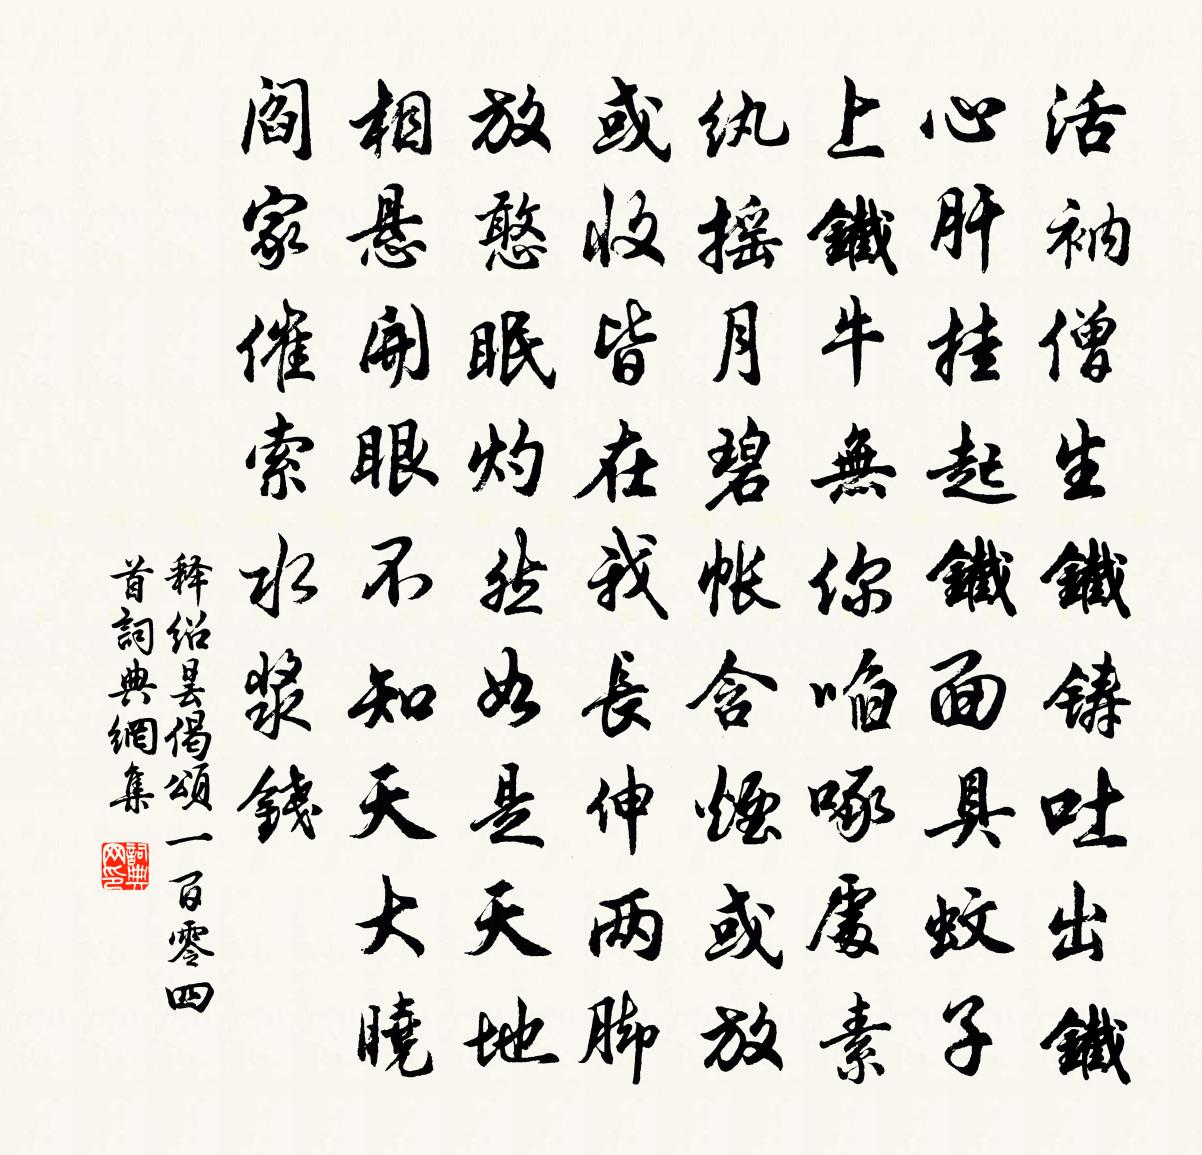 活衲僧生鐵鑄吐出鐵
心肝挂起鐵面具蚊子
上鐵牛無你咱啄處素
纨摇月碧帐含煙或放
或收皆在我長伸两脚
放憨眠灼然如是天地
相悬開眼不知天大曉
阎家催索水漿錢
释绍昙偈頌一百零四
首詞典網集
詞典网印